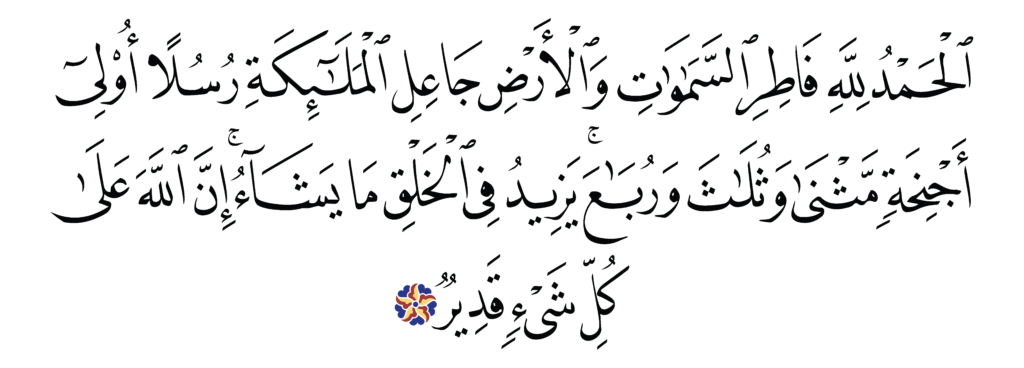 ٱلْحَمْدُ لِلَّهِ فَاطِرِ ٱلسَّمَٰوَٰتِ وَٱلْأَرْضِ جَاعِلِ ٱلْمَلَٰٓئِكَةِ رُسُلًا أُو۟لِىٓ
أَجْنِحَةٍ مَّثْنَىٰ وَثُلَٰثَ وَرُبَٰعَ ۚ يَزِيدُ فِى ٱلْخَلْقِ مَا يَشَآءُ ۚ إِنَّ ٱللَّهَ عَلَىٰ
كُلِّ شَىْءٍ قَدِيرٌ